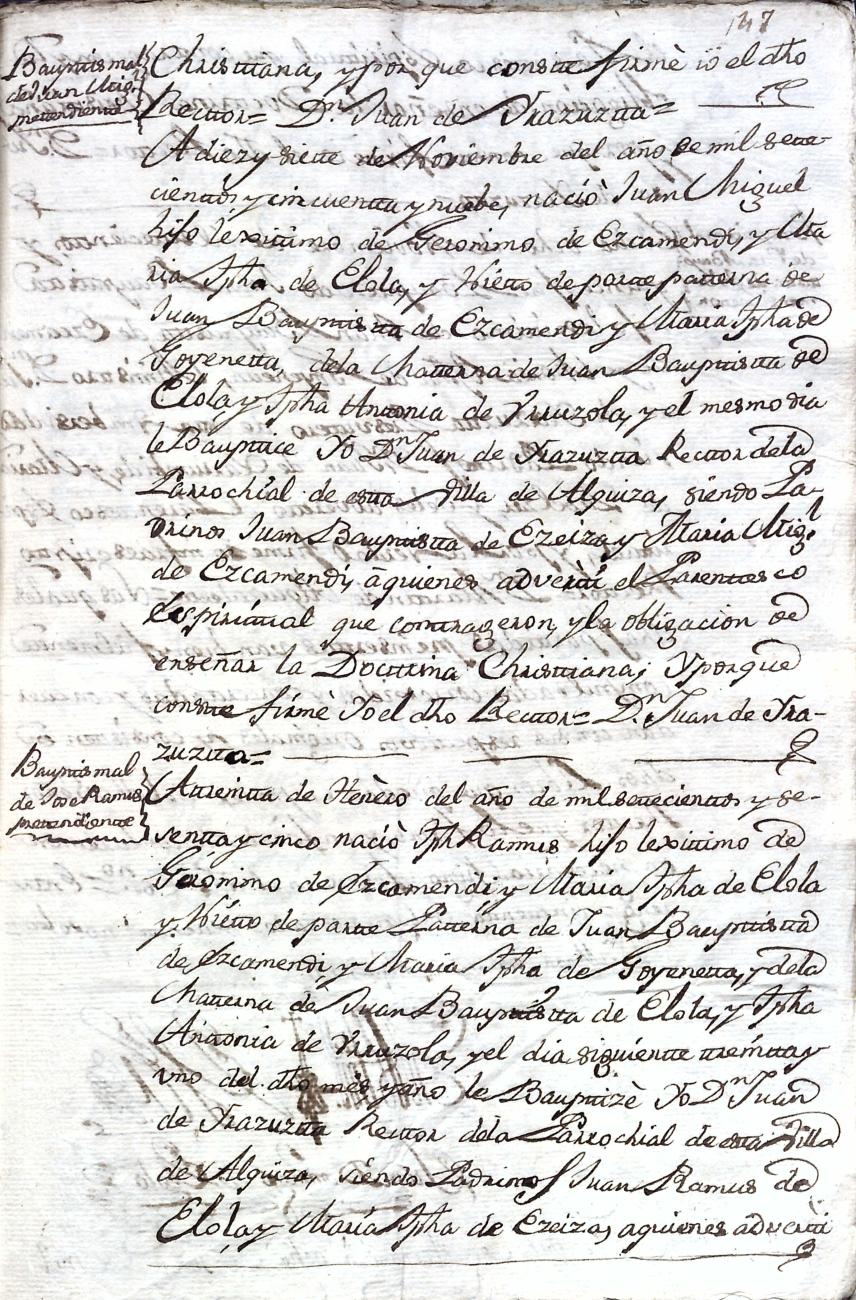 147
Bauptismal
de Juan Mig.l
pretendiente
Christtiana, y por que constte firmè iò el dho
Recttor= D.n Juan de Yrazuztta=
A diez y siette de Noviembre del año de mil sette-
cienttos y cincuentta y nuebe, naciò Juan Miguel
hijo lexitimo de Geronimo de Ezcamendi, y Ma
ria Jpha de Elola, y Nietto de partte patterna de
Juan Bauptistta de Ezcamendi y Maria Jpha de
Goyenetta, dela Matterna de Juan Bauptistta de
Elola y Jpha Anttonia de Yruzola, y el mesmo dia
le Bauptice Yo D.n Juan de Yrazuztta Recttor dela
Parrochial de estta Villa de Alquiza, siendo Pa-
drinos Juan Bauptistta de Ezeiza y Maria Mig.l
de Ezcamendi, à quienes adverttí el Parenttesco
Espirittual que conttrageron, y la obligacion de
enseñar la Docttrina Christtiana; Y porque
constte firmè Yo el dho Recttor= D.n Juan de Yra-
zuztta=
Bauptismal
de Jose Ramus
prettendientte
A ttreintta de Henèro del año de mil settecienttos y se-
sentta y cinco naciò Jph Ramus hijo lexittimo de
Geronimo de Ezcamendi y Maria Jpha de Elola
y Nietto de partte Patterna de Juan Bauptistta
de Ezcamendi, y Maria Jpha de Goyenetta, y dela
Matterna de Juan Bauptistta de Elola, y Jpha
Anttonia de Yruzola, y el dia siguientte ttreintta y
vno del dho mes y año le Bauptizè Yo D.n Juan
de Yrazuztta Recttor dela Parrochial de estta Villa
de Alquiza, siendo Padrinos Juan Ramus de
Elola, y Maria Jpha de Ezeiza, a quienes adverttì